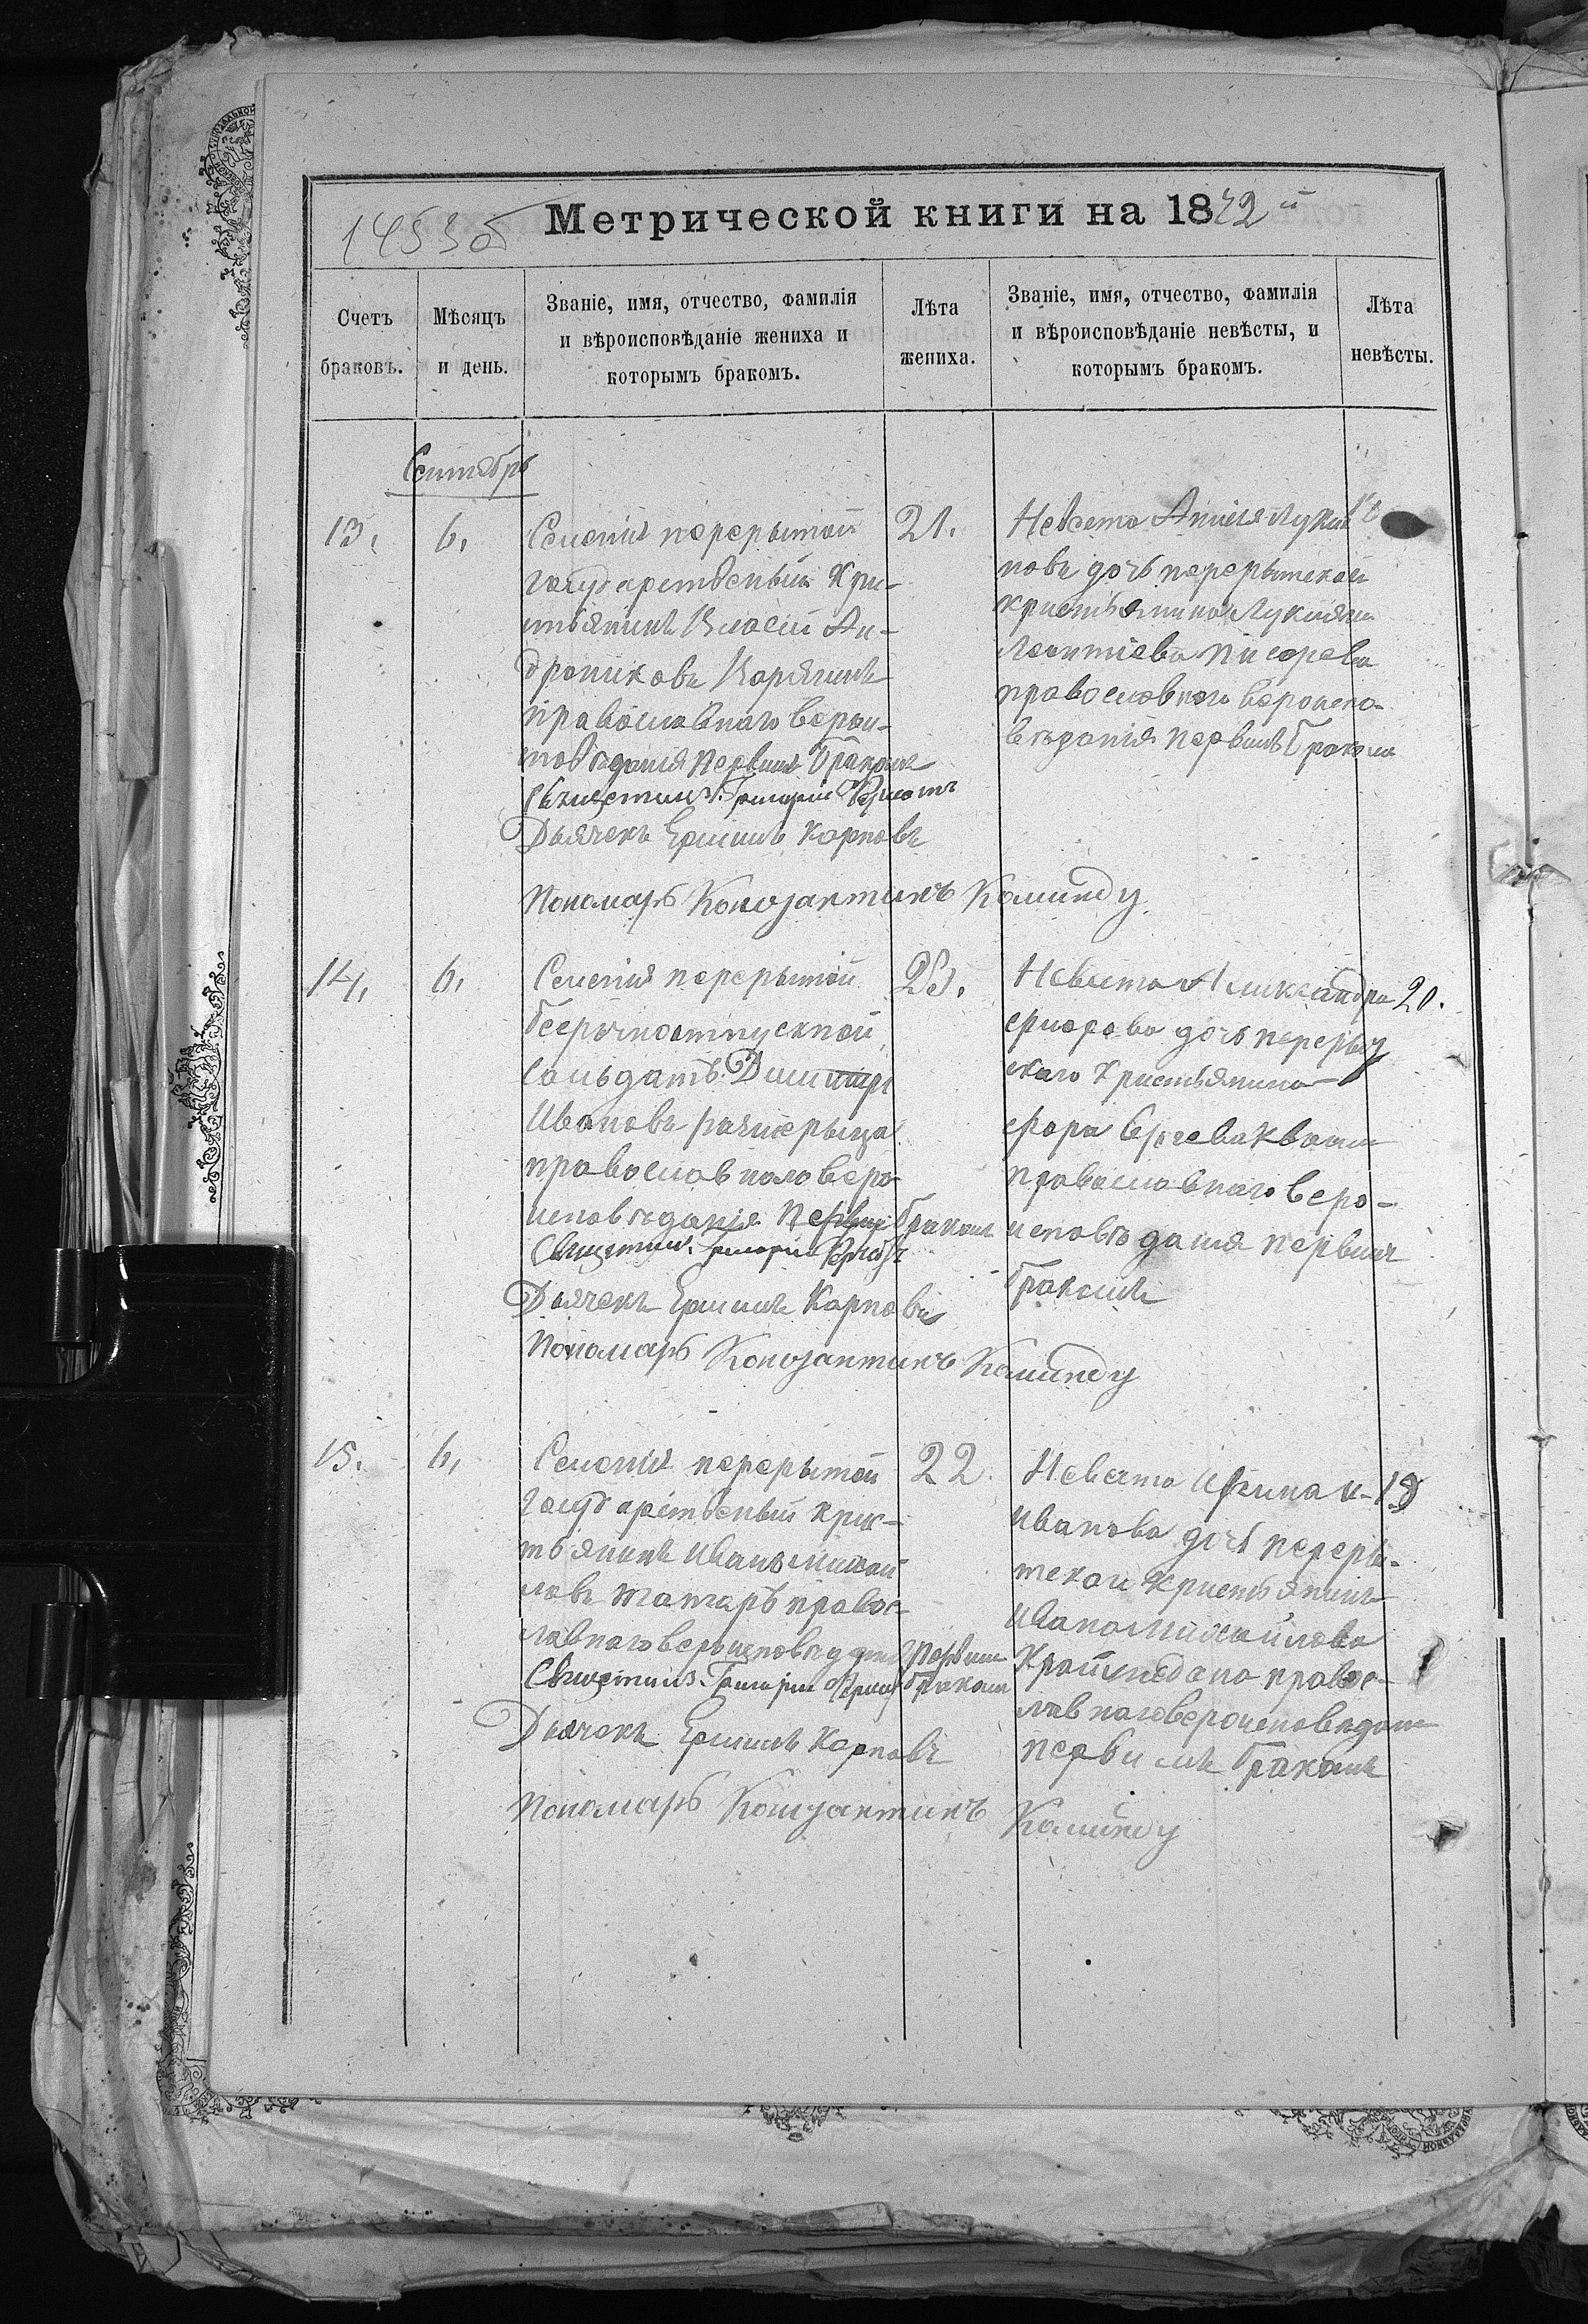 1453 об
Метрической книги на 1872 й
Счетъ браковъ.
Мѣсяцъ и день.
Званіе, имя, отчество, фамилія
и вѣроисповѣданіе жениха и
которымъ бракомъ.
Лѣта жениха.
Званіе, имя, отчество, фамилія
и вѣроисповѣданіе невѣсты, и
которымъ бракомъ.
Лѣта невѣсты.
Сентябрь
13.
6.
Селенія перерытой
государственый кри-
тьянинъ Власій Ан-
дрониковъ
православнаго веры-
поведания первимъ бракомъ
Священник Григорій
Дьячекъ Ермилъ Карповъ
Пономарь Конзантинъ Коминду
21.
Невета
дочь перерытской
кристьянина Лукияна
Леонтіева Писарева
православнаго вероиспо-
ведания первимъ браком
14.
6.
Селенія перерытой
безрочноотпускной
солдатъ Димитри
Ивановъ
православнаго веро-
исповеданія первим браком
Священник Григорій
Дьячекъ Ермилъ Карповъ
Пономарь Конзантинъ Коминду
23.
Невыта Александра
дочь перерыт
скаго кристьянина
православнаго веро-
исповедания первим
бракомъ
20.
15.
6.
Селенія перерытой
государственый крис-
тьянинъ Иванъ Михай
ловъ татаръ правос-
лавнаго вероисповедания первим
Священник Григорій браком
Дьячекъ Ермилъ Карповъ
Пономарь Конзантинъ Коминду
22.
Невыта Ирина и-
иванова дочь переры-
тской кристьянинъ
Ивана Михайлова
правос-
лавнаго вероисповедани
первимъ бракомъ
18